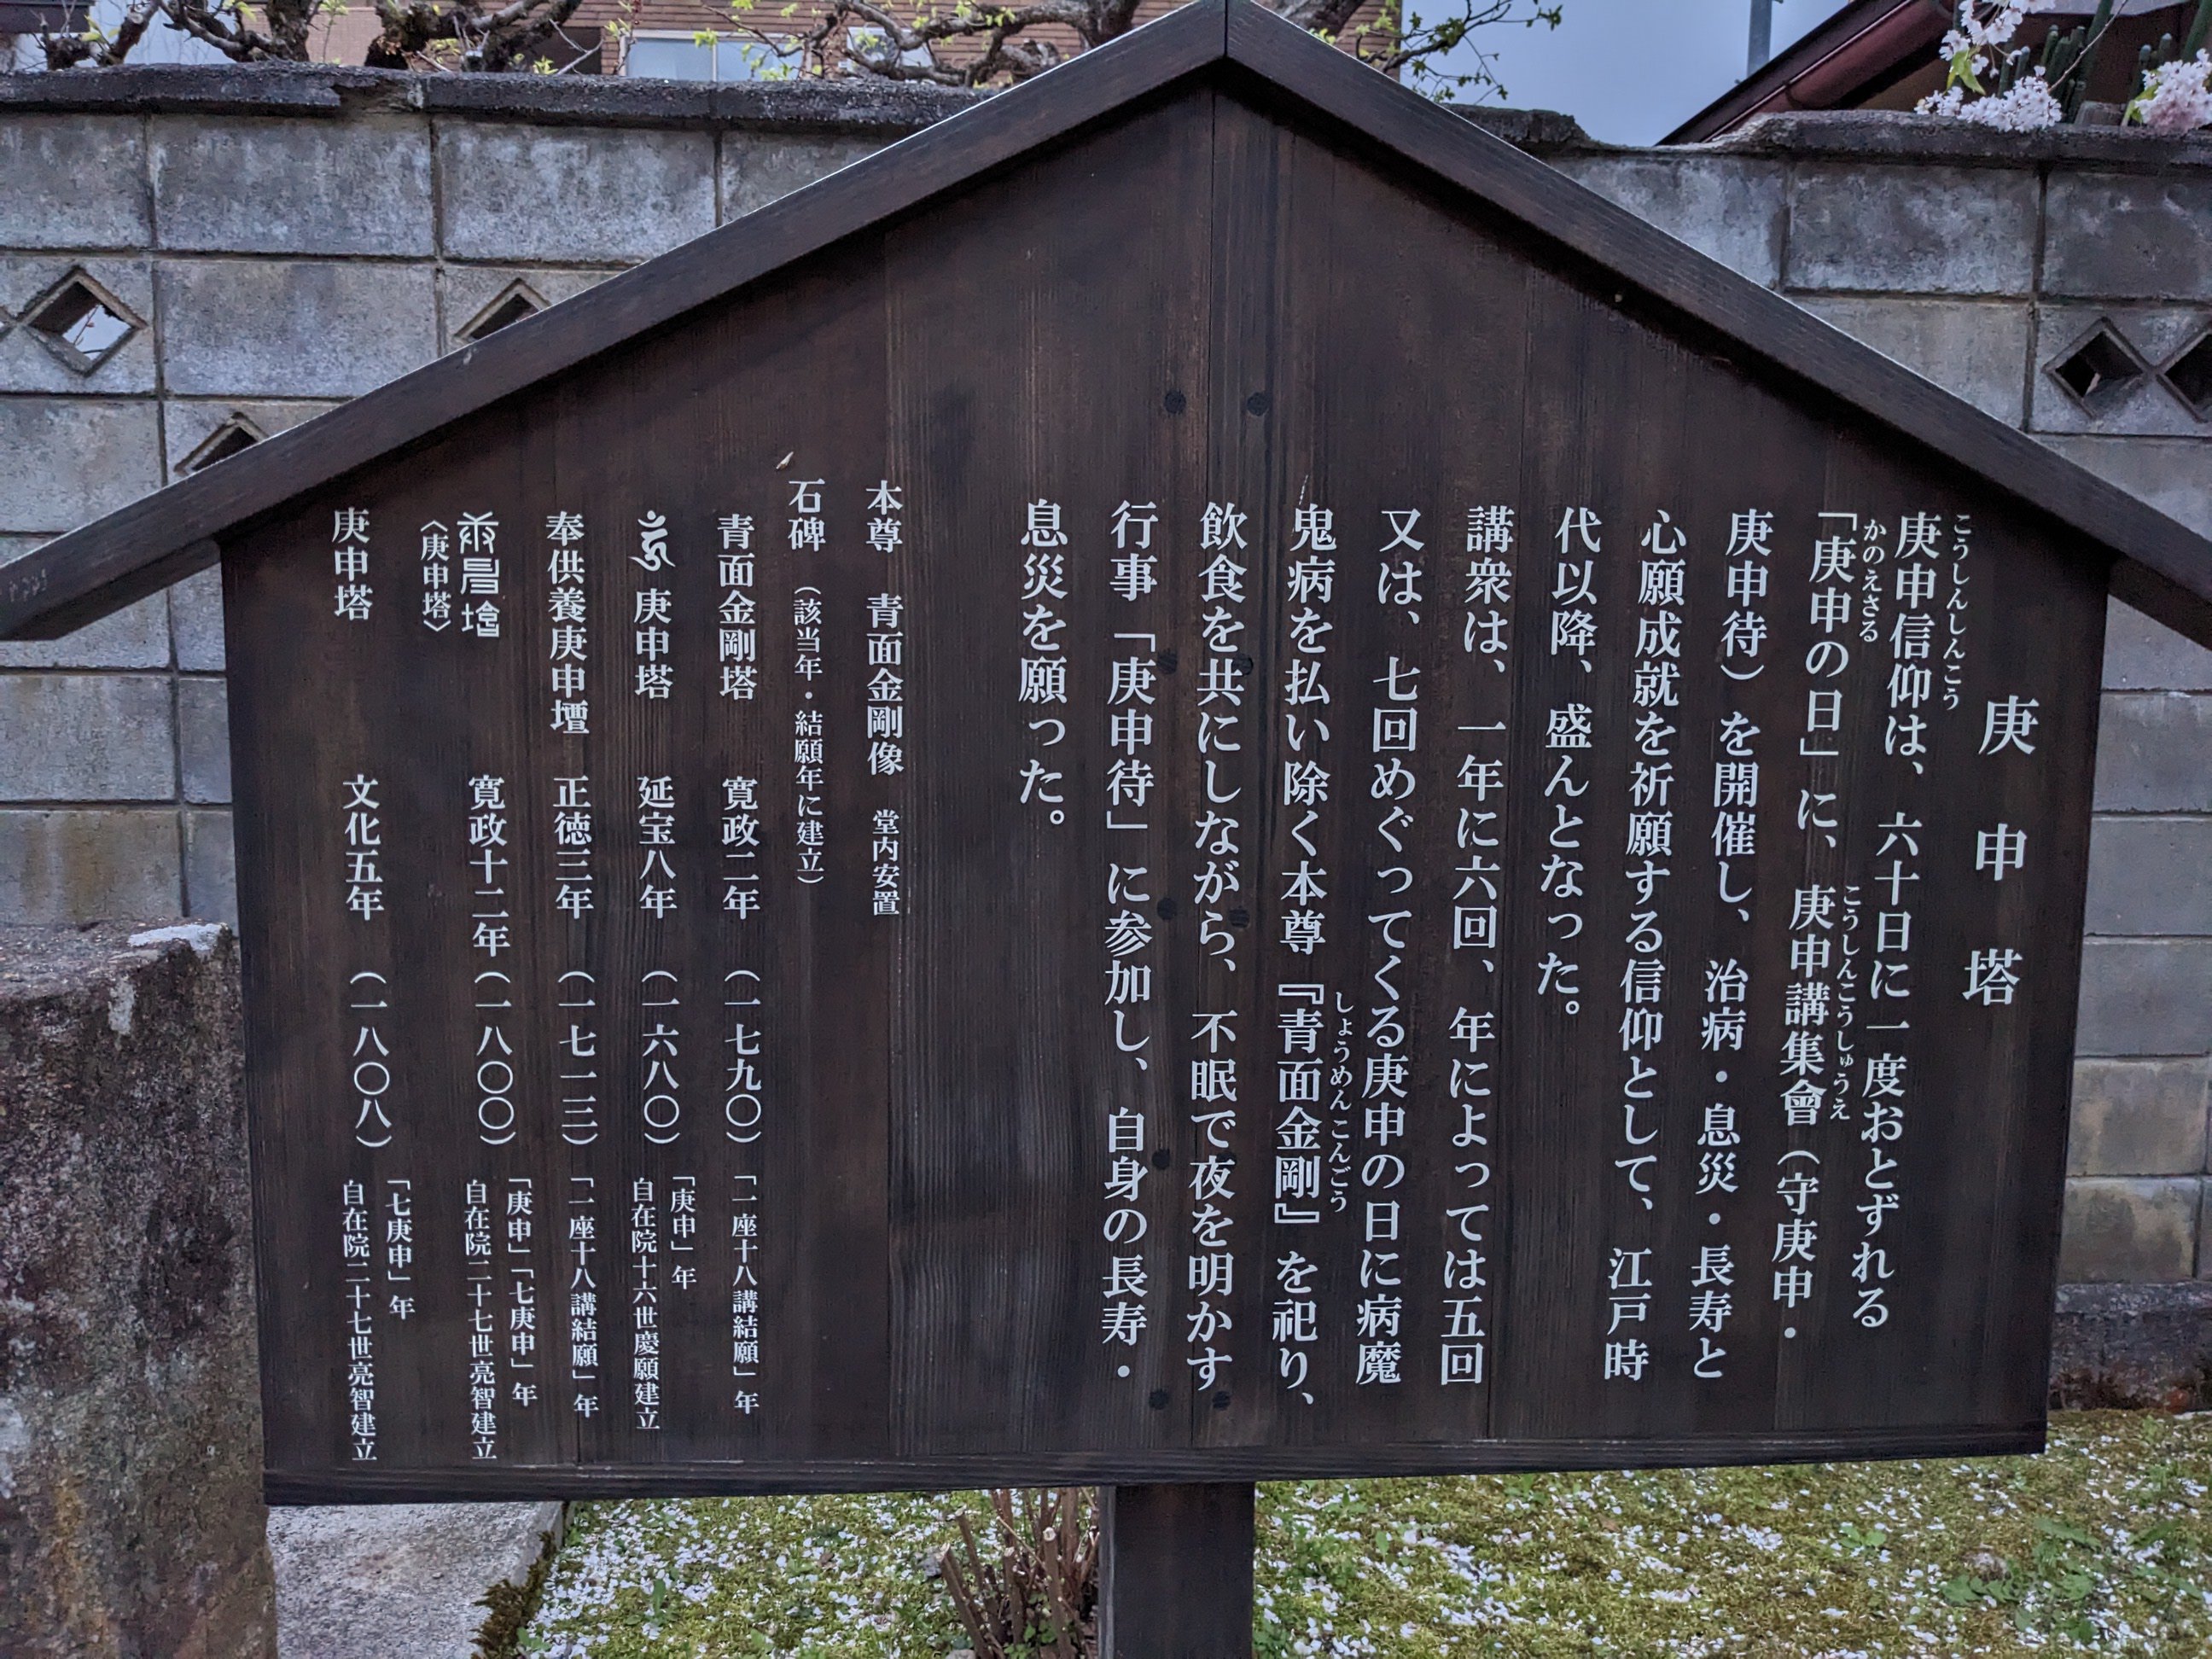 庚申塔
こうしんしんこう
庚申信仰は、六十日に一度おとずれる
かのえさる
こうしんこうしゅうえ
「庚申の日」に、庚申講集會（守庚申・
庚申待）を開催し、治病・息災・長寿と
心願成就を祈願する信仰として、江戸時
代以降、盛んとなった。
講衆は、一年に六回、年によっては五回
又は、七回めぐってくる庚申の日に病魔
しょうめんこんごう
鬼病を払い除く本尊『青面金剛』を祀り、
飲食を共にしながら、不眠で夜を明かす
行事「庚申待」に参加し、自身の長寿・
息災を願った。
本尊　青面金剛像　堂内安置
石碑　（該当年・結願年に建立）
青面金剛塔　寛政二年（一七九〇）「一座十八講結願」年
庚申塔　延宝八年（一六八〇）「庚申」年
自在院十六世慶願建立
奉供養庚申壇　正徳三年（一七一三）「一座十八講結願」年
寛政十二年（一八〇〇）「庚申」「七庚申」年
自在院二十七世亮智建立
〈庚申塔〉
庚申塔　文化五年（一八〇八）「七庚申」年
自在院二十七世亮智建立